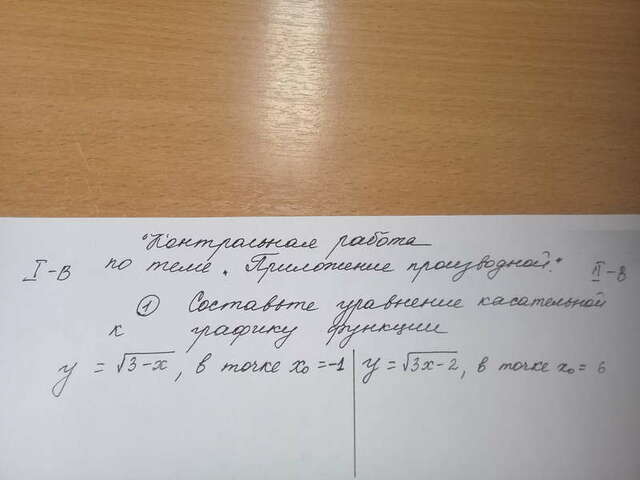 "Контрольная работа
I-В по теме „Приложение производной." II-В
① Составьте уравнение касательной
к графику функции
y = √3-x, в точке x₀ = -1 | y = √3x-2, в точке x₀ = 6